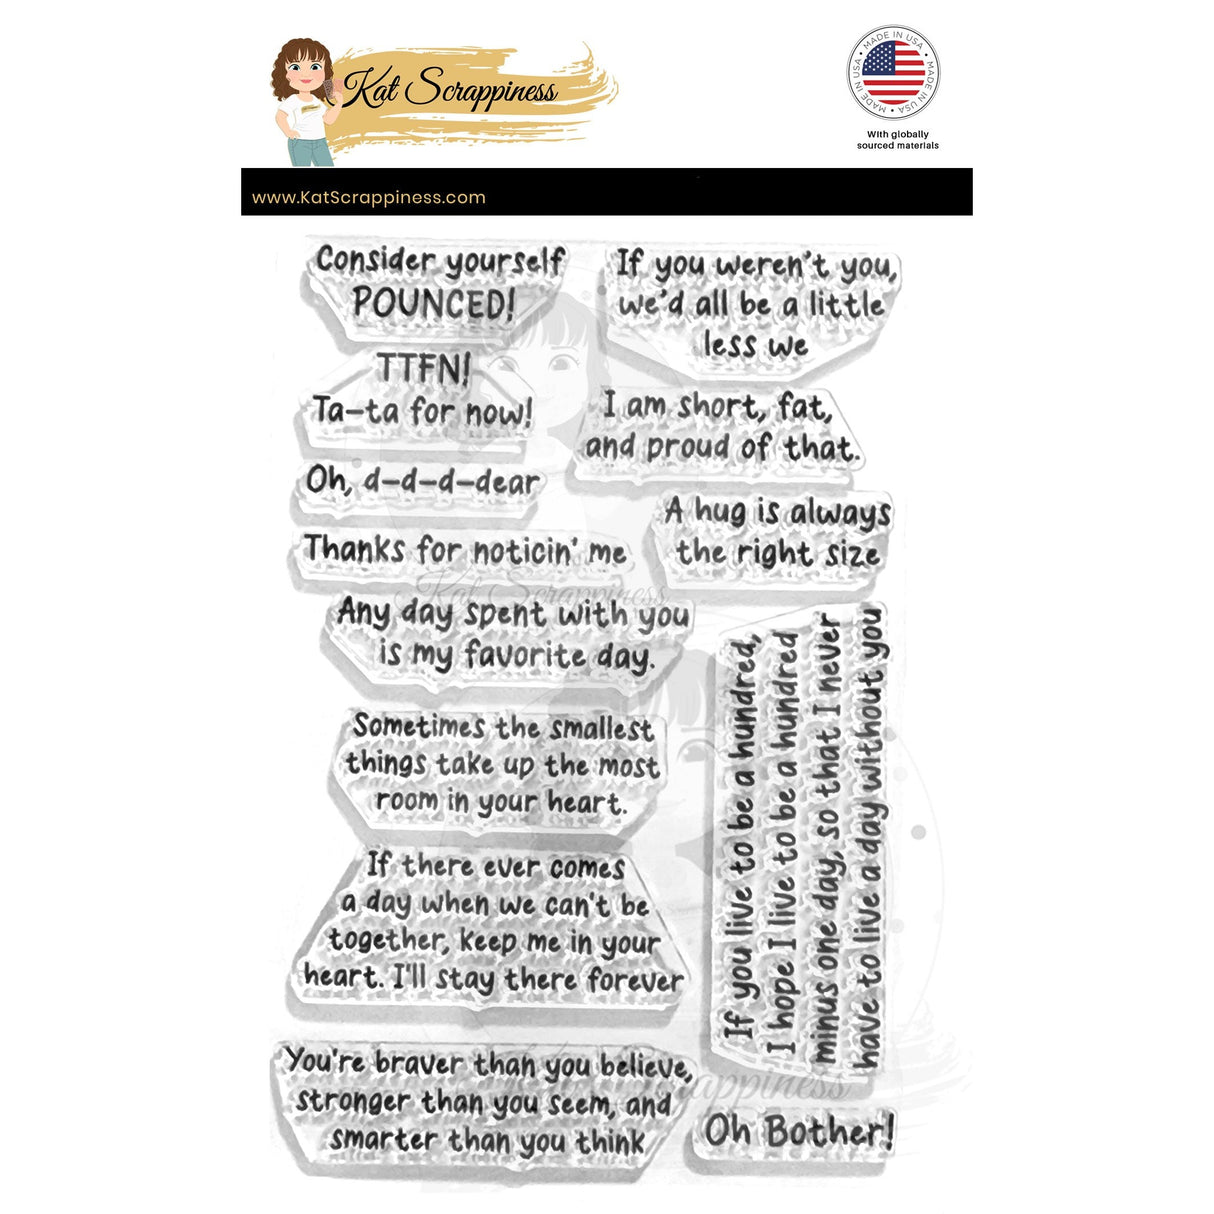 Kat Scrappiness
MADE IN USA • MADE IN USA • MADE IN USA •
With globally
sourced materials
www.KatScrappiness.com
Consider yourself
POUNCED!
If you weren't you,
we'd all be a little
less we
TTFN!
Ta-ta for now!
I am short, fat,
and proud of that.
Oh, d-d-d-dear
A hug is always
the right size
Thanks for noticin' me
Kat Scrappiness
Any day spent with you
is my favorite day.
If you live to be a hundred,
I hope I live to be a hundred
minus one day, so that I never
have to live a day without you
Sometimes the smallest
things take up the most
room in your heart.
If there ever comes
a day when we can't be
together, keep me in your
heart. I'll stay there forever
You're braver than you believe,
stronger than you seem, and
smarter than you think
Oh Bother!